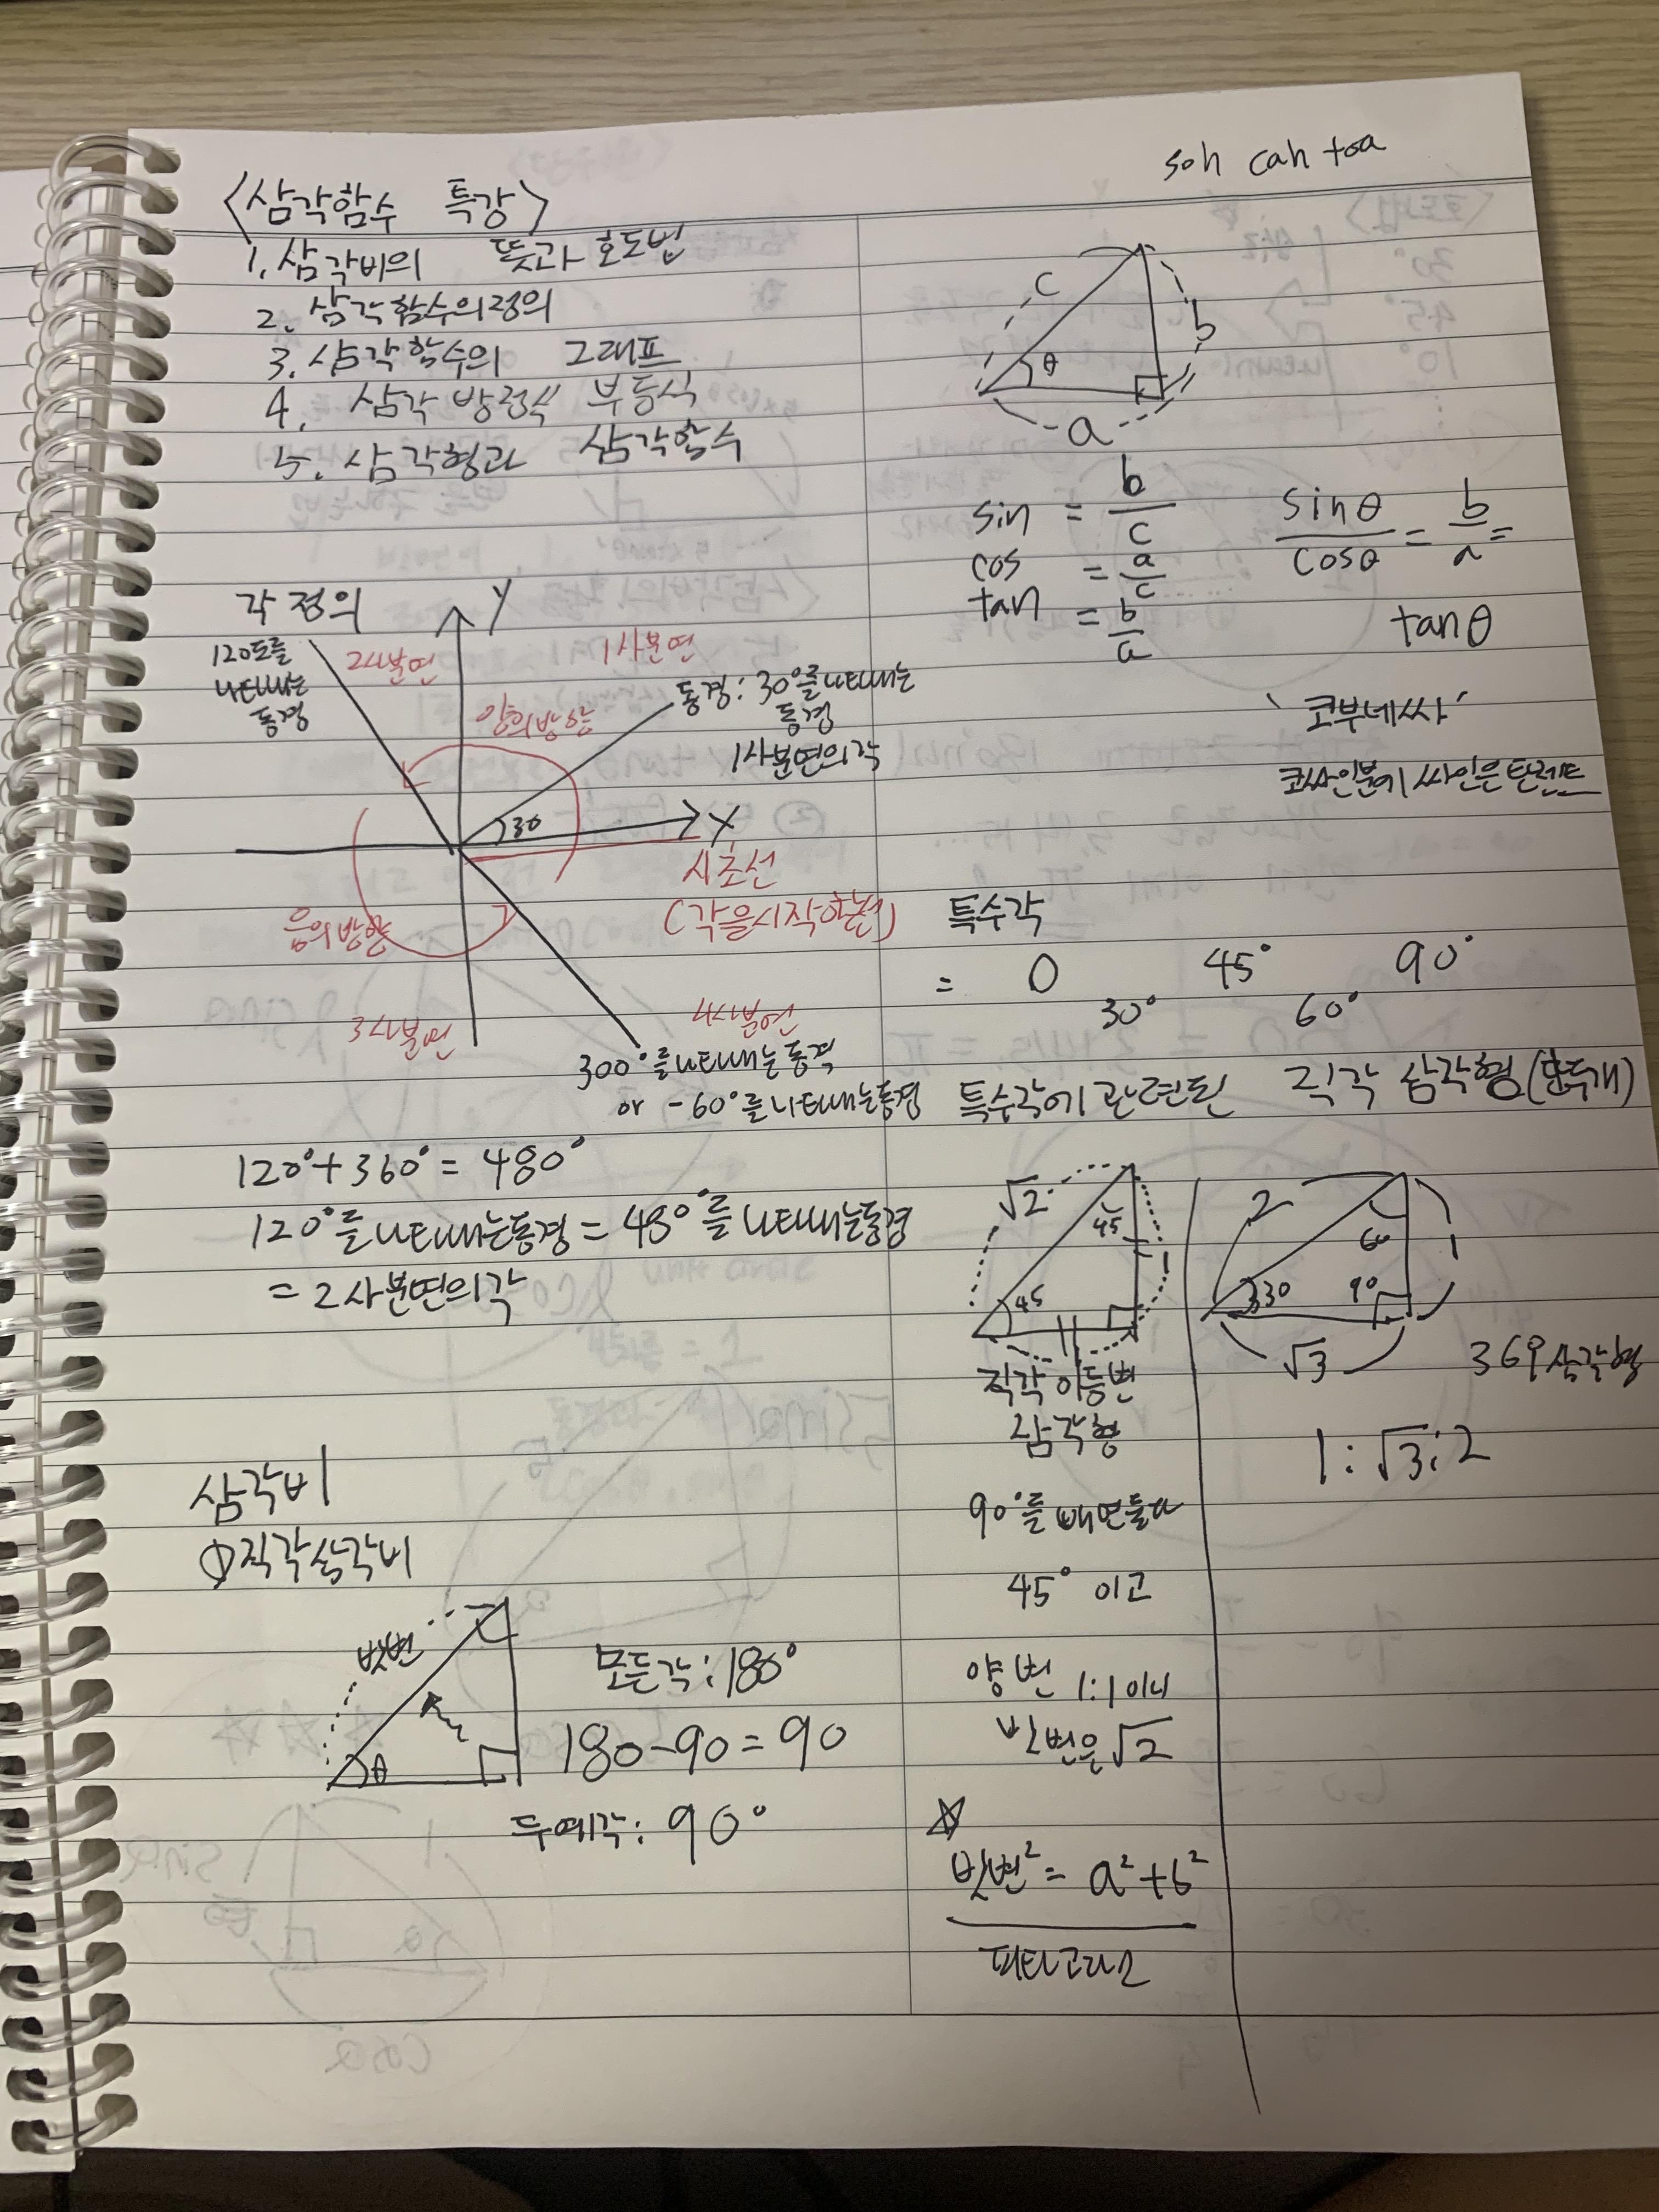 soh cah toa
<삼각함수 특강>
1. 삼각비의 뜻과 호도법
2. 삼각함수의정의
3. 삼각함수의 그래프
4. 삼각 방정식 부등식
5. 삼각형과 삼각함수
각 정의
Y
120도를
나타내는
동경
2사분면
1사분면
양의방향
동경: 30°를나타내는
동경
1사분면의각
30
X
시초선
(각을시작하는선)
음의방향
3사분면
4사분면
300°를나타내는동경
or -60°를나타내는동경
120°+360°=480°
120°를나타내는동경=480°를나타내는동경
=2사분면의각
삼각비
①직각삼각비
빗변
θ
모든각:180°
180-90=90
두예각: 90°
c
b
θ
a
sin = b/c
cos = a/c
tan = b/a
sinθ/cosθ = b/a =
tanθ
'코부네싸'
코싸인분에 싸인은탄젠트
특수각
= 0 30° 45° 60° 90°
특수각에관련된 직각 삼각형(딱두개)
√2
45
45
1
직각이등변
삼각형
90°를빼면둘다
45° 이고
양변 1:1이니
빗변은√2
☆
빗변²= a²+b²
피타고라스
2
60
1
30
90
√3
369삼각형
1:√3:2